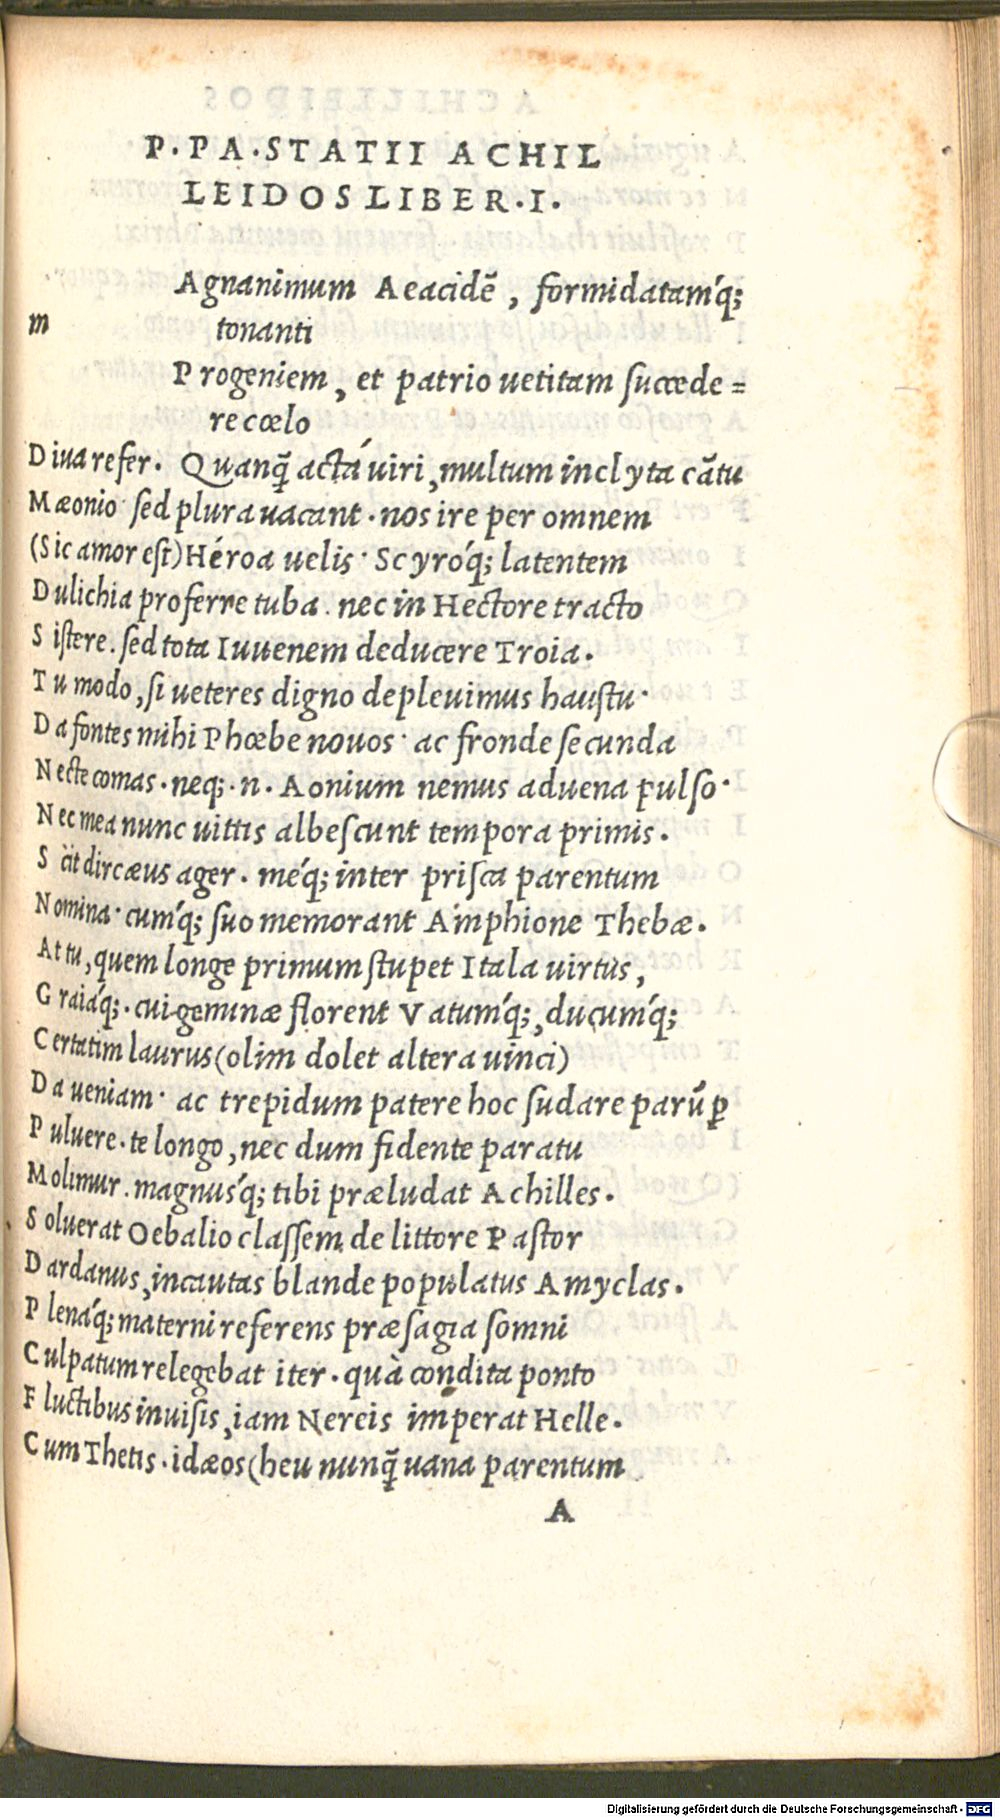 P. PA. STATII ACHIL
LEIDOS LIBER. I.
m
Agnanimum Aeacidē, formidatamq́;
tonanti
Progeniem, et patrio uetitam succede=
re cœlo
Diua refer. Quanq̃ acta uiri, multum inclyta cātu
Mæonio sed plura uacant. nos ire per omnem
(Sic amor est) Héroa uelis. Scyróq; latentem
Dulichia proferre tuba. nec in Hectore tracto
Sistere. sed tota Iuuenem deducere Troia.
Tu modo, si ueteres digno depleuimus haustu.
Da fontes mihi Phœbe nouos. ac fronde secunda
Necte comas. neq;. n. Aonium nemus aduena pulso.
Nec mea nunc uittis albescunt tempora primis.
Scit dircæus ager. méq; inter prisca parentum
Nomina. cumq́; suo memorant Amphione Thebæ.
At tu, quem longe primum stupet Itala uirtus,
Graiáq;. cui geminæ florent Vatumq́;, ducumq́;
Certatim laurus (olim dolet altera uinci)
Da ueniam. ac trepidum patere hoc sudare parū ꝑ
Puluere. te longo, nec dum fidente paratu
Molimur. magnusq́; tibi præludat Achilles.
Soluerat Oebalio classem de littore Pastor
Dardanus, incautas blande populatus Amyclas.
Plenáq; materni referens præsagia somni
Culpatum relegebat iter. quà condita ponto
Fluctibus inuisis, iam Nereis imperat Helle.
Cum Thetis. idæos (heu nunq̃ uana parentum
A
Digitalisierung gefördert durch die Deutsche Forschungsgemeinschaft - DFG